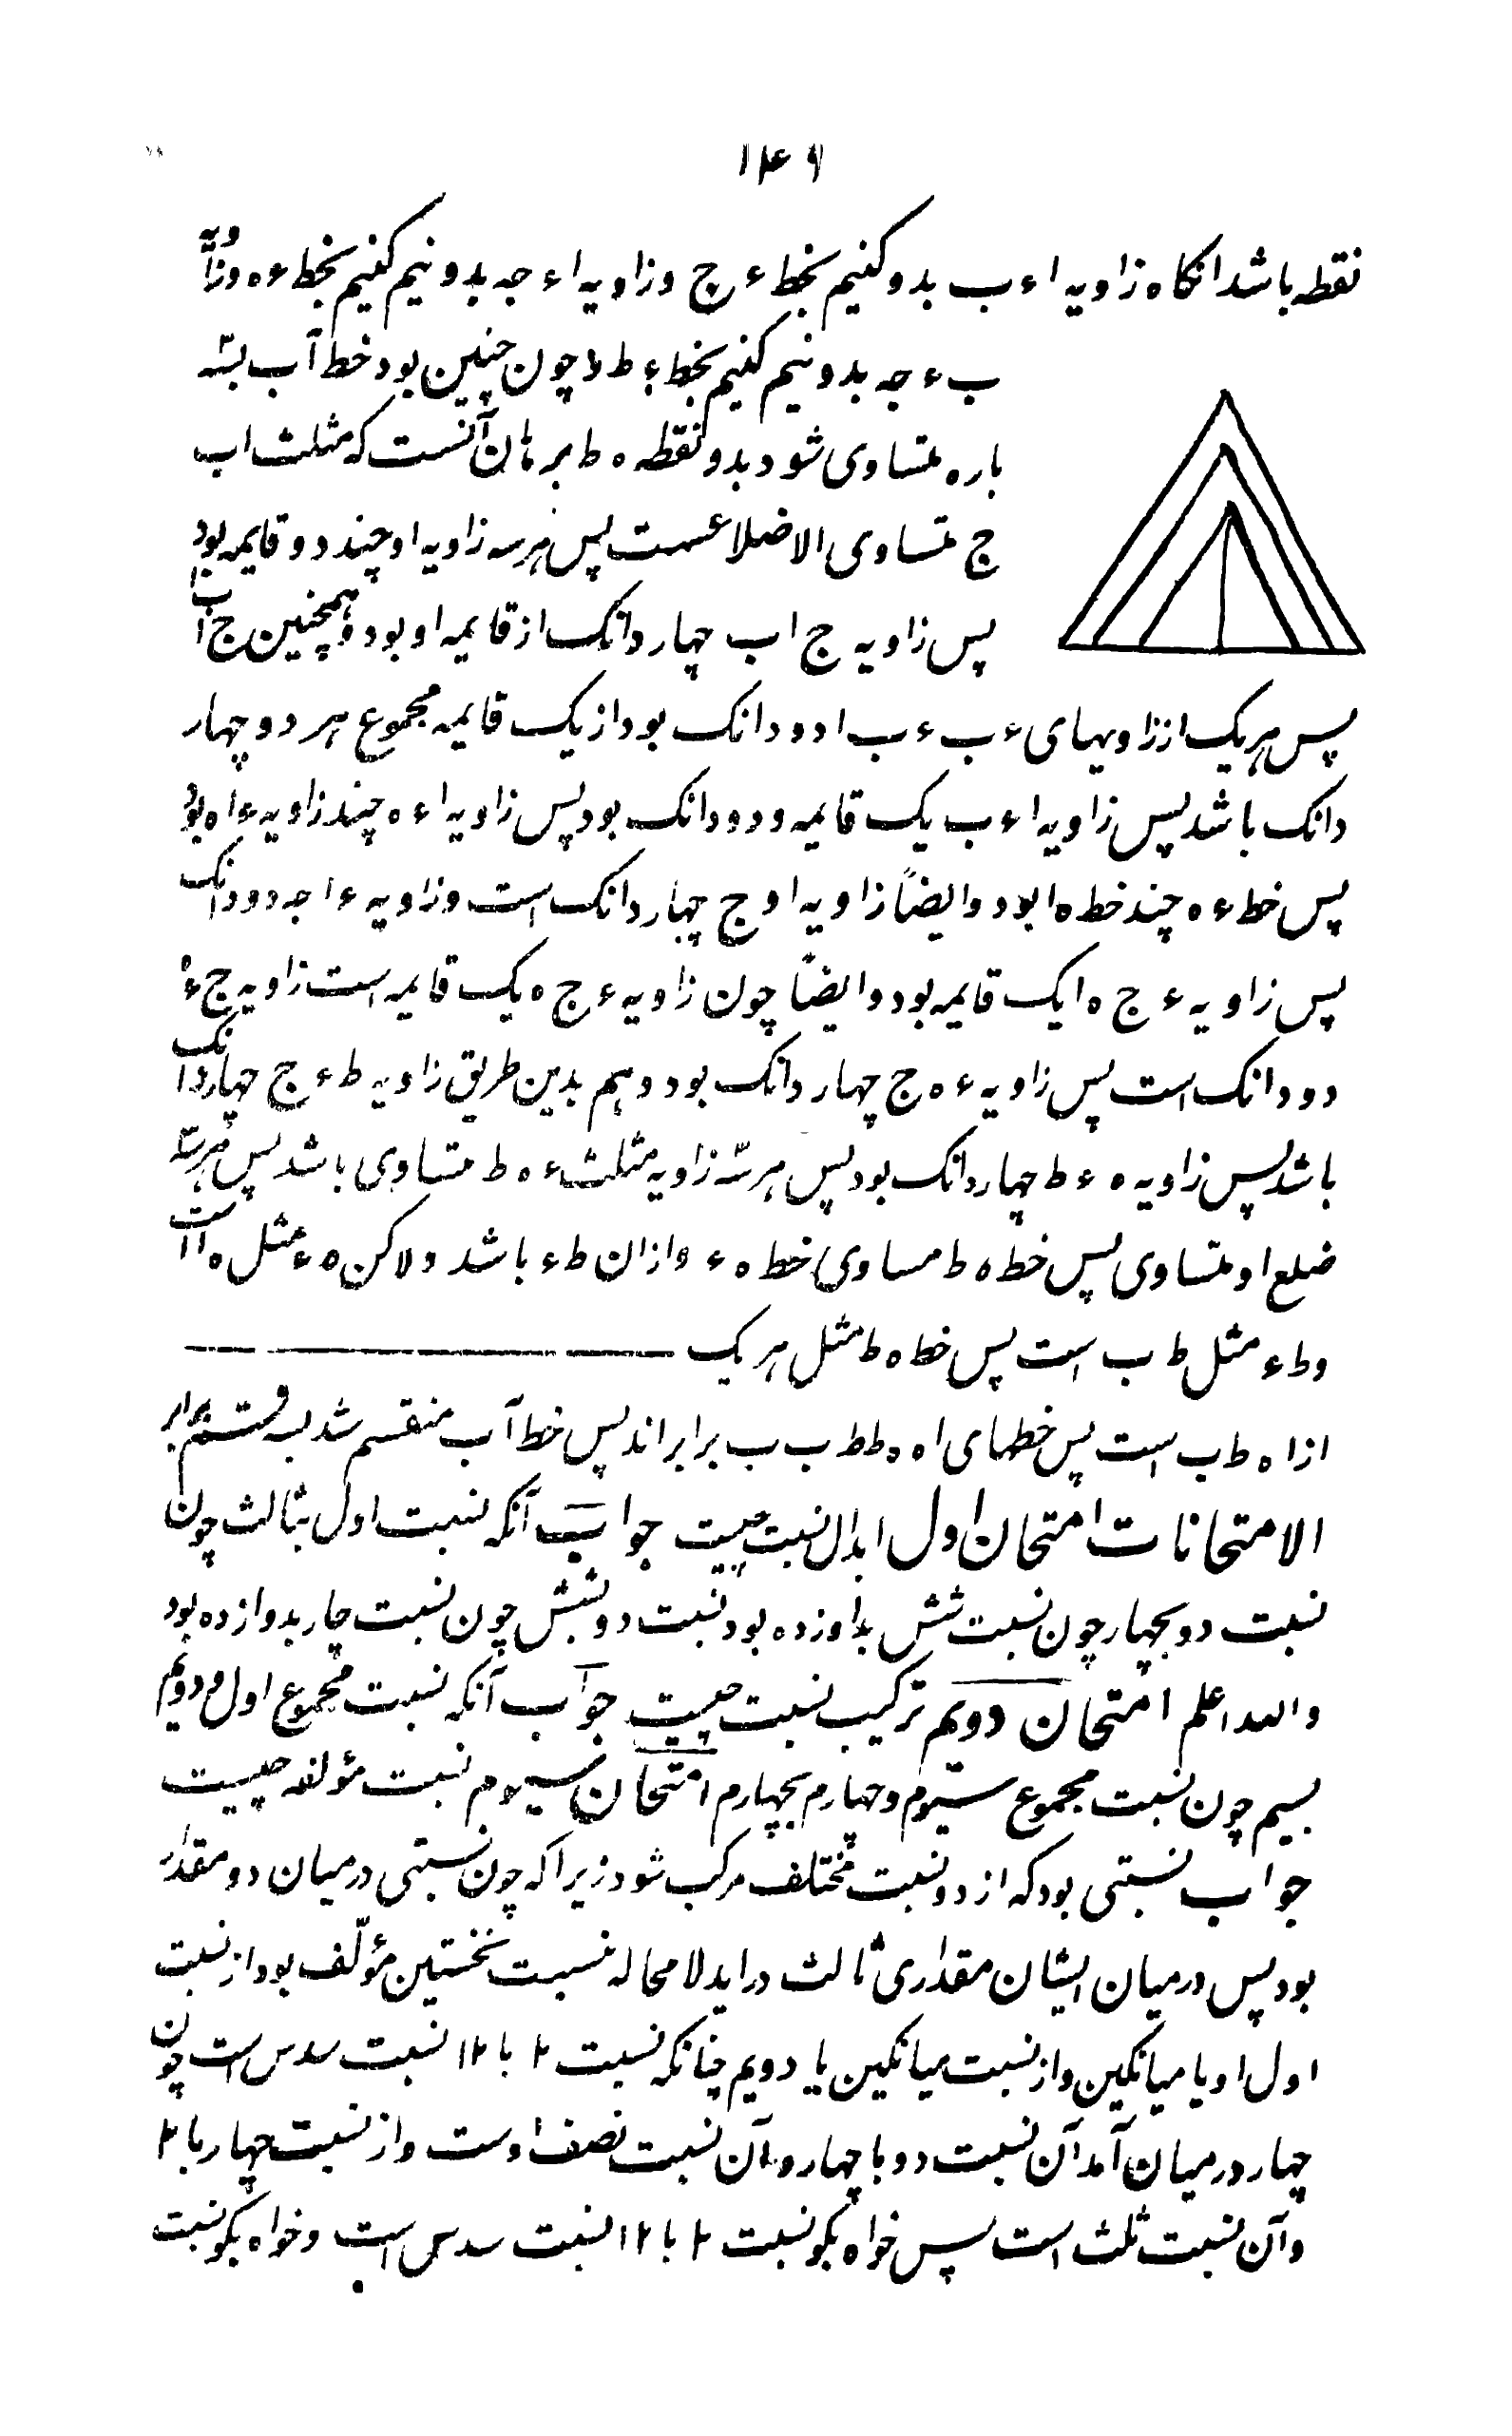 ۱۴۹
نقطه باشد انکاه زاویه ا ء ب بدو کنیم بخط ء ج وزاویه ا ء جه بدو نیم کنیم بخط ء ه وزاویه
ب ء جه بدو نیم کنیم بخط ء ط چون چنین بود خط آب بسّه
باره متساوی شود بدو نقطه ه ط برهان آنست که مثلث اب
ج متساوی الاضلاعست پس هرسه زاویه او چند دو قایمه بود
پس زاویه ج اب چهار دانک از قایمه او بود وهمچنین ج ا ب
پس هریک از زاویهای ء ب ء ب ا دو دانک بود از یک قایمه مجموع هر دو چهار
دانک باشد پس زاویه ا ء ب یک قایمه ودو دانک بود پس زاویه ا ء ه چند زاویه ء ا ه بود
پس خط ء ه چند خط ه ا بود وایضاً زاویه ا و ج چهار دانک است وزاویه ء ا جه دودانک
پس زاویه ء ج ه ا یک قایمه بود وایضاً چون زاویه ء ج ه یک قایمه است زاویه ج ء ه
دو دانک است پس زاویه ء ه ج چهار دانک بود وهم بدین طریق زاویه ط ء ج چهاردانک
باشد پس زاویه ه ء ط چهاردانک بود پس هرسّه زاویه مثلث ء ه ط متساوی باشد پس هرسّه
ضلع او متساوی پس خط ه ط مساوی خط ه ء وازان ط ء باشد ولاکن ه ء مثل ه ا است
وط ء مثل ط ب است پس خط ه ط مثل هر یک
ازا ه ط ب است پس خطهای ا ه ه ط ط ب ب برابر اند پس خط آب منقسم شد بسه قسم برابر
الامتحانات امتحان اول ابدال نسبت چیست جواب آنکه نسبت اول بثالث چون
نسبت دو بچهار چون نسبت شش بداوزده بود نسبت دو بشش چون نسبت چار بدوازده بود
والله اعلم امتحان دویم ترکیب نسبت چیست جواب آنکه نسبت مجموع اول ودویم
بسیم چون نسبت مجموع سیّوم وچهارم بچهارم امتحان سیوم نسبت مؤلفه چیست
جواب نسبتی بود که از دو نسبت مختلف مرکب شود زیرا که چون نسبتی درمیان دو مقدار
بود پس درمیان ایشان مقداری ثالث دراید لامحاله نسبت نخستین مؤلّف بود از نسبت
اول او با میانکین واز نسبت میانکین با دویم چنانکه نسبت ۲ با ۱۲ نسبت سدس است چون
چهار درمیان آمد آن نسبت دو با چهار وآن نسبت نصف اوست واز نسبت چهار با ۲
وآن نسبت ثلث است پس خواه بکو نسبت ۲ با ۱۲ نسبت سدس است وخواه بکو نسبت